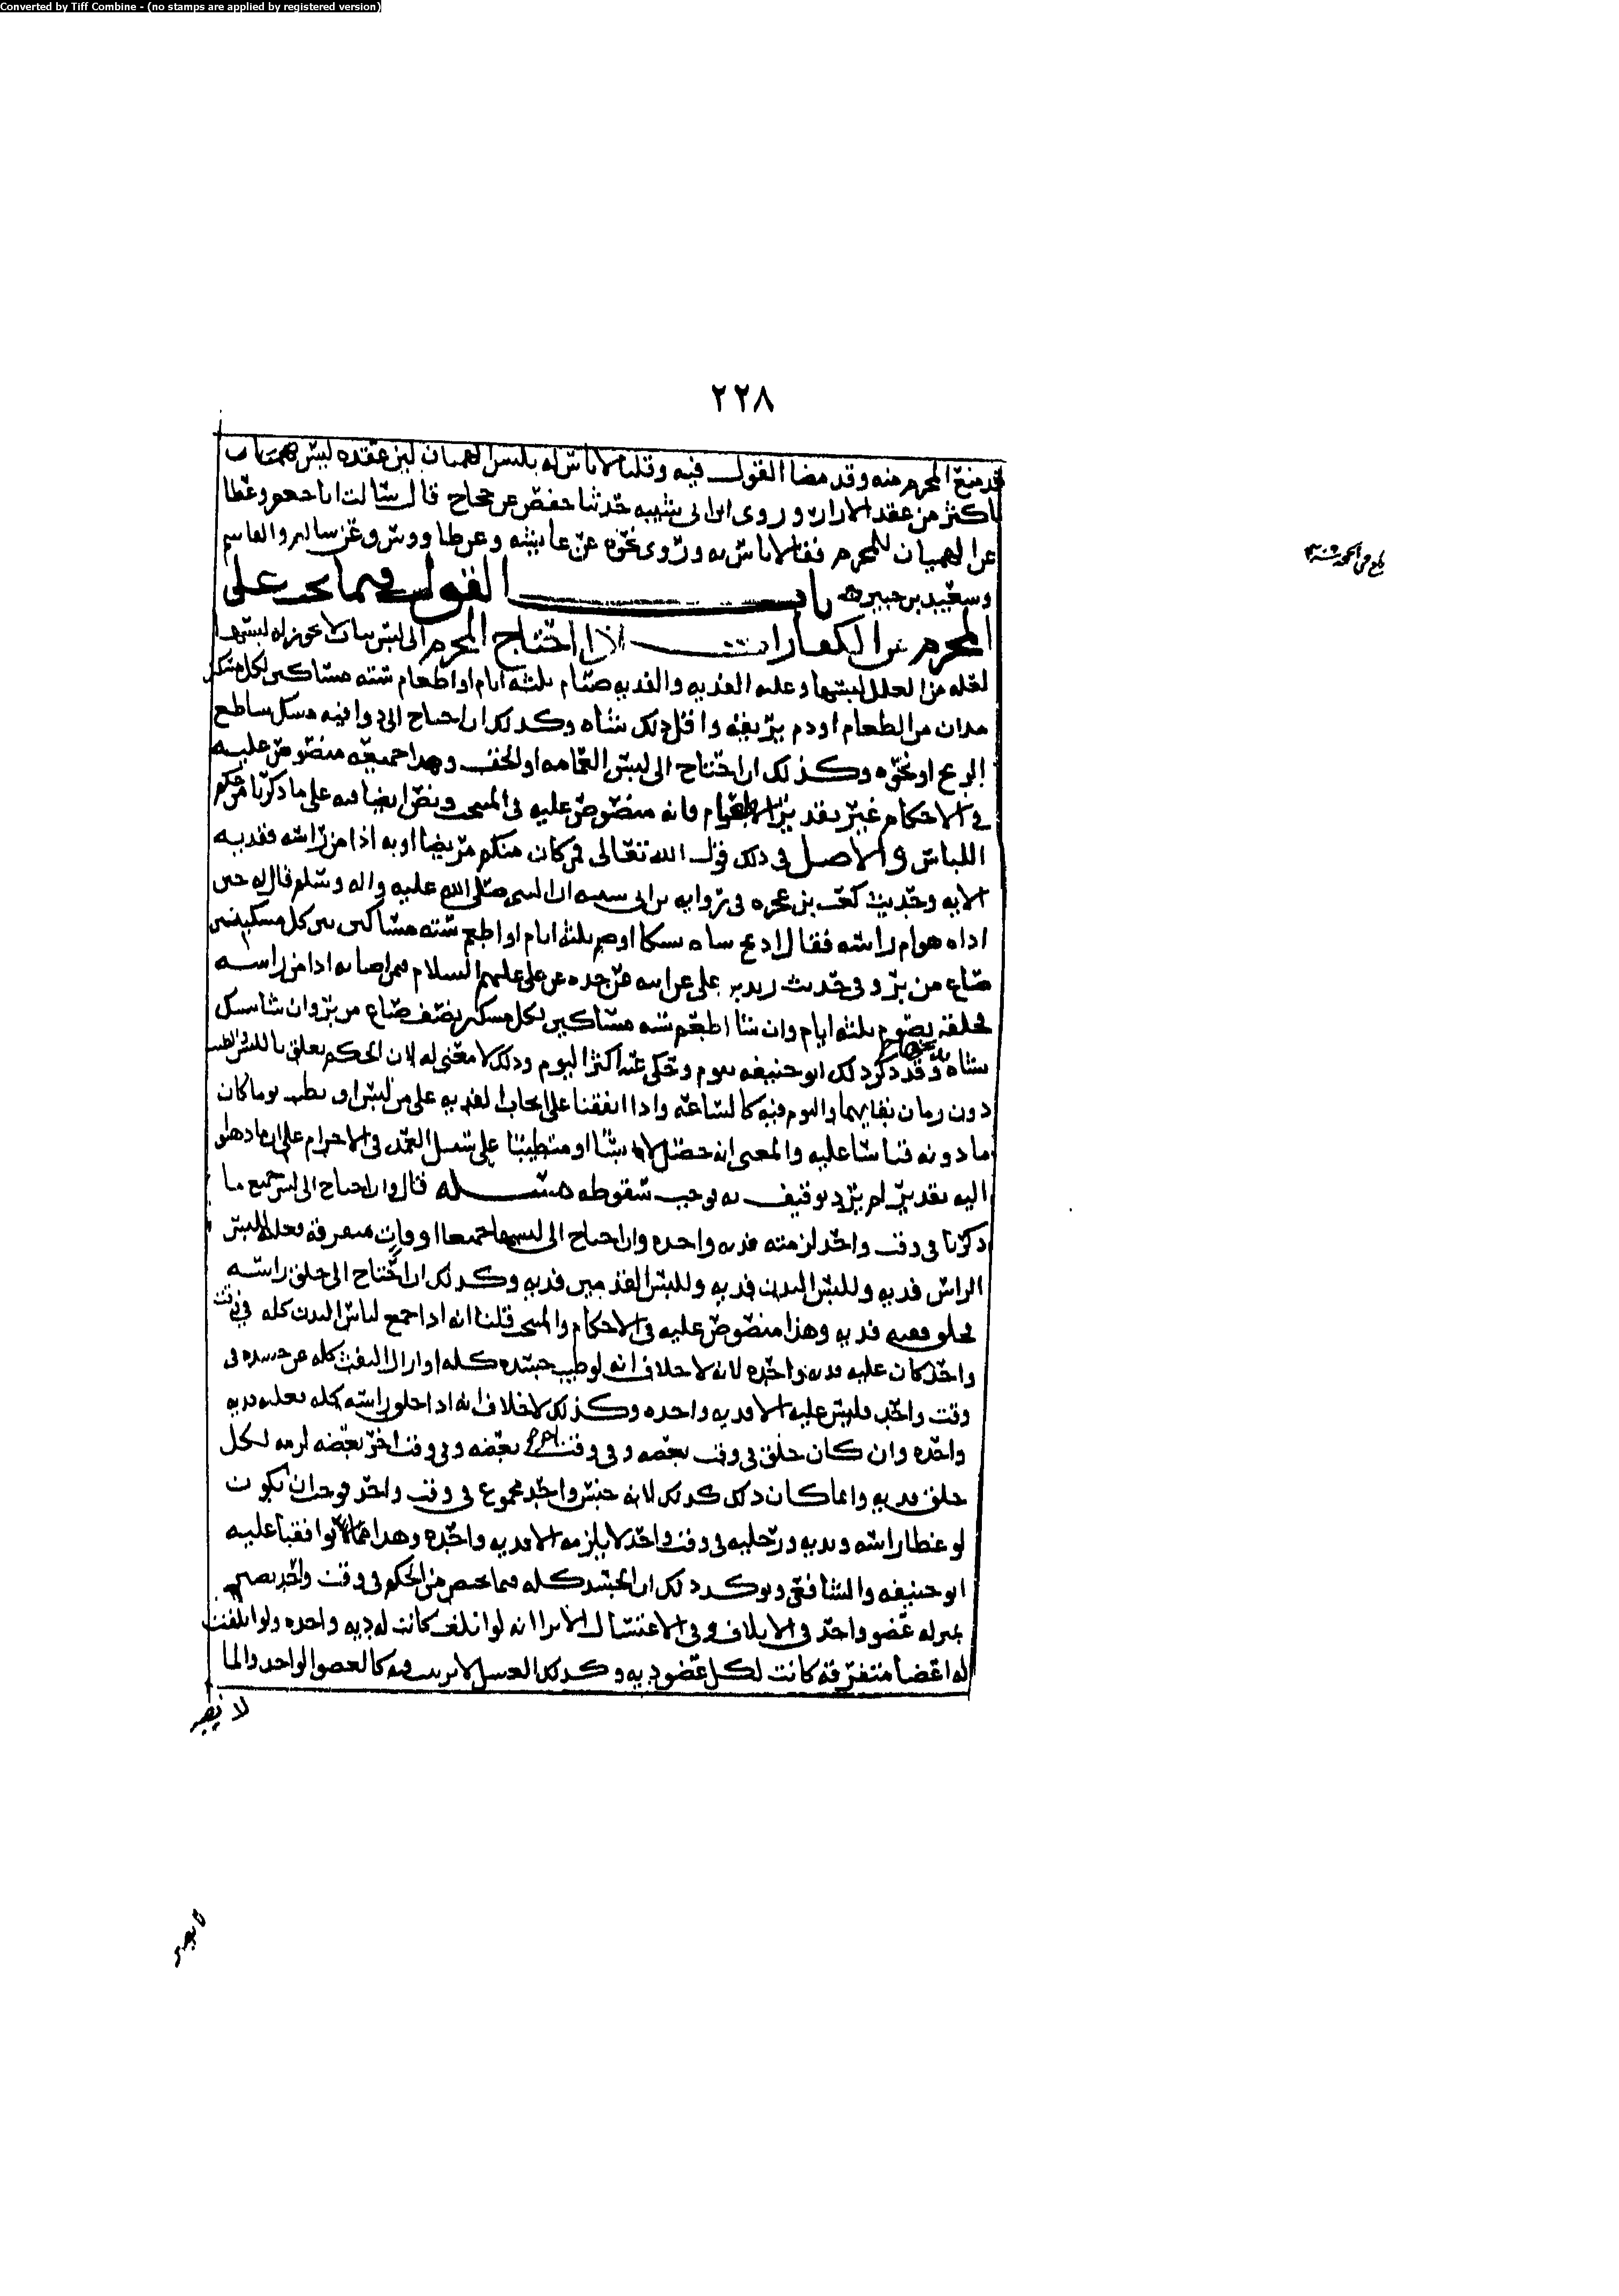 Converted by Tiff Combine - (no stamps are applied by registered version)
٢٢٨
قد منع المحرم منه وقد مضا القول فيه وقلنا لا باس له بلبس الهميان لين عقده ليس
باكثر من عقد الازار وروى ابن ابي شيبه حدثنا حفص عن حجاج قال سالت ابا جعفر وعطا
عن الهميان للمحرم فقالا لا باس به وروى نحوه عن عايشه وعن طاووس وعن سالم والقاسم
وسعيد بن جبير باب القول فيما يجب على
المحرم من الكفارات اذا احتاج المحرم الى لبس ثياب لا يجوز له لبسها
لعله من العلل لبسها وعليه الفديه والفديه صيام ثلثه ايام او اطعام سته مساكين لكل مسكين
مدان من الطعام او دم يريقه واقل ذلك شاه وكذلك ان احتاج الى دوا فيه مسك ساطع
الريح او نحوه وكذلك ان احتاج الى لبس العمامه او الخف وهذا جميعه منصوص عليه
في الاحكام غير تقدير الاطعام فانه منصوص عليه في المنتخب ونص ايضا فيه على ما ذكرنا من حكم
اللباس والاصل في ذلك قول الله تعالى فمن كان منكم مريضا او به اذا من راسه ففديه
الايه وحديث كعب بن عجره في روايه بن ابي شيبه ان النبي صلى الله عليه واله وسلم قال له حين
اذاه هوام راسه فقال اذبح شاه نسكا او صم ثلثه ايام او اطعم سته مساكين بين كل مسكينين
صاع من بر وفي حديث زيد بن علي عن ابيه عن جده عن علي عليهم السلام فيمن اصابه اذا من راسه
فحلقه يصوم ثلثه ايام وان شا اطعم سته مساكين لكل مسكين نصف صاع من بر وان شا نسك
شاه وقد ذكر ذلك ابو حنيفه بيوم وحكي عنه اكثر اليوم وذلك لا معنى له لان الحكم تعلق باللبس والطيب
دون زمان بقايهما واليوم فيه كالساعه واذا اتفقنا على ايجاب الفديه على من لبس او تطيب يوما كان
ما دونه قياسا عليه والمعنى انه حصل لابسا او متطيبا على سبيل العمد في الاحرام على ان ما ذهبوا
اليه تقدير لم يرد توقيف به يوجب سقوطه مسئله قال وان احتاج الى لبس جميع ما
ذكرنا في وقت واحد لزمته فديه واحده وان احتاج الى لبسها جميعا اوقات متفرقه فعليه للبس
الراس فديه وللبس البدن فديه وللبس القدمين فديه وكذلك ان احتاج الى حلق راسه
فحلق ففيه فديه وهذا منصوص عليه في الاحكام والمنتخب قلنا انه اذا جمع لباس البدن كله في وقت
واحد كان عليه فديه واحده لانه لا خلاف انه لو طيب جسده كله او ازال التفث كله عن جسده في
وقت واحد فليس عليه الا فديه واحده وكذلك لا خلاف انه اذا حلق راسه كله فعليه فديه
واحده وان كان حلق في وقت بعضه وفي وقت اخر بعضه وفي وقت اخر بعضه لزمه لكل
حلق فديه وانما كان ذلك كذلك لانه جنس واحد مجموع في وقت واحد فوجب ان يكون
لو غطا راسه ويديه ورجليه في وقت واحد لا يلزمه الا فديه واحده وهذا مما لا يوافقنا عليه
ابو حنيفه والشافعي ويوكد ذلك ان الجسد كله فيما يختص من الحكم في وقت واحد يصير
بمنزله عضو واحد في الاتلاف وفي الاغتسال الا ترا انه لو اتلف كانت له ديه واحده ولو اتلفت
له اعضا متفرقه كانت لكل عضو ديه وكذلك الغسل لا ترتيب فيه كالعضو الواحد والما
لا يصير